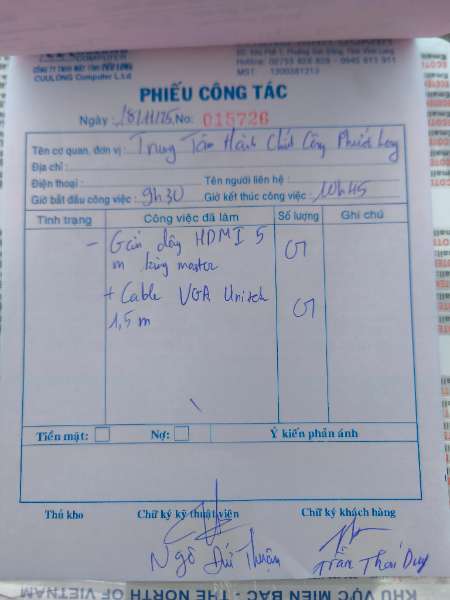 COMPUTER
CUULONG Computer L.t.d
MST : 1300381213
PHIẾU CÔNG TÁC
Ngày : 18/11/25 No: 015726
Tên cơ quan, đơn vị : Trung Tâm Hành Chính Công Phước Long
Địa chỉ :
Điện thoại : Tên người liên hệ :
Giờ bắt đầu công việc : 9h30 Giờ kết thúc công việc : 10h45
Tình trạng Công việc đã làm Số lượng Ghi chú
- Gắn dây HDMI 5
m king master
+ Cable VGA Unitek
1,5 m
Tiền mặt: Nợ: Ý kiến phản ánh
Thủ kho Chữ ký kỹ thuật viên Chữ ký khách hàng
Ngô Đức Thuận Trần Thái Duy
KHU VỰC MIỀN BẮC - THE NORTH OF VIETNAM